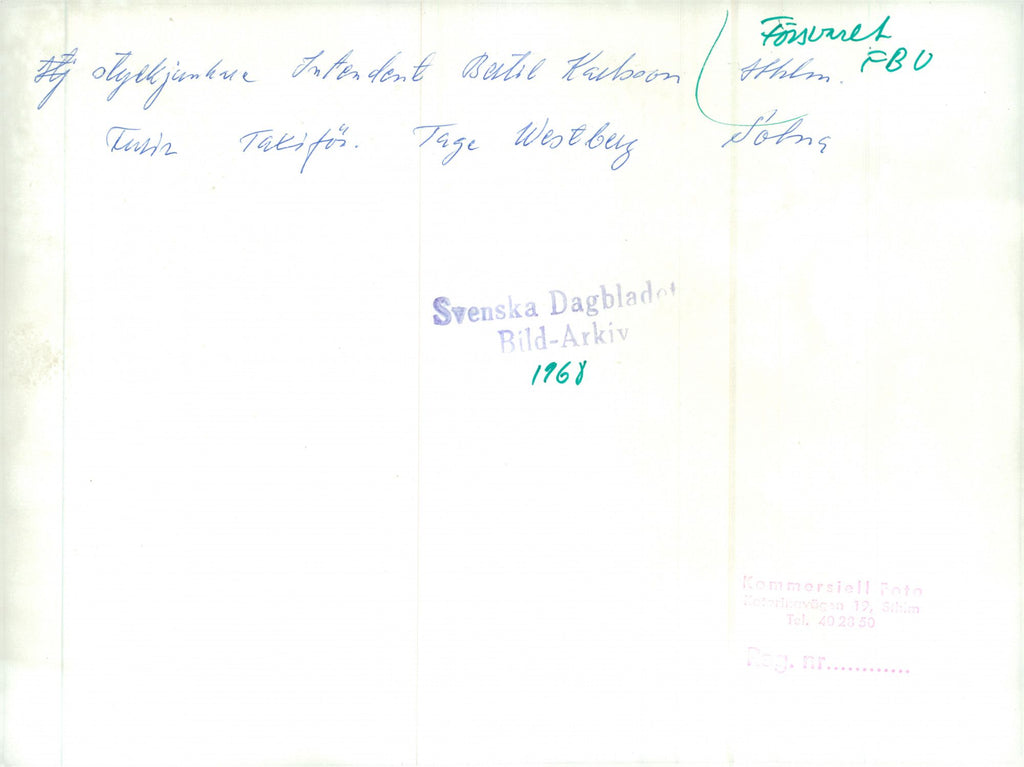 Försvaret
FBU
Fj styckjunkare Intendent Bertil Karlsson Sthlm.
Furir Taxiför. Tage Westberg Solna
Svenska Dagbladet
Bild-Arkiv
1968
Kommersiell Foto
Katarinavägen 19, Sthlm
Tel. 40 28 50
Reg. nr............